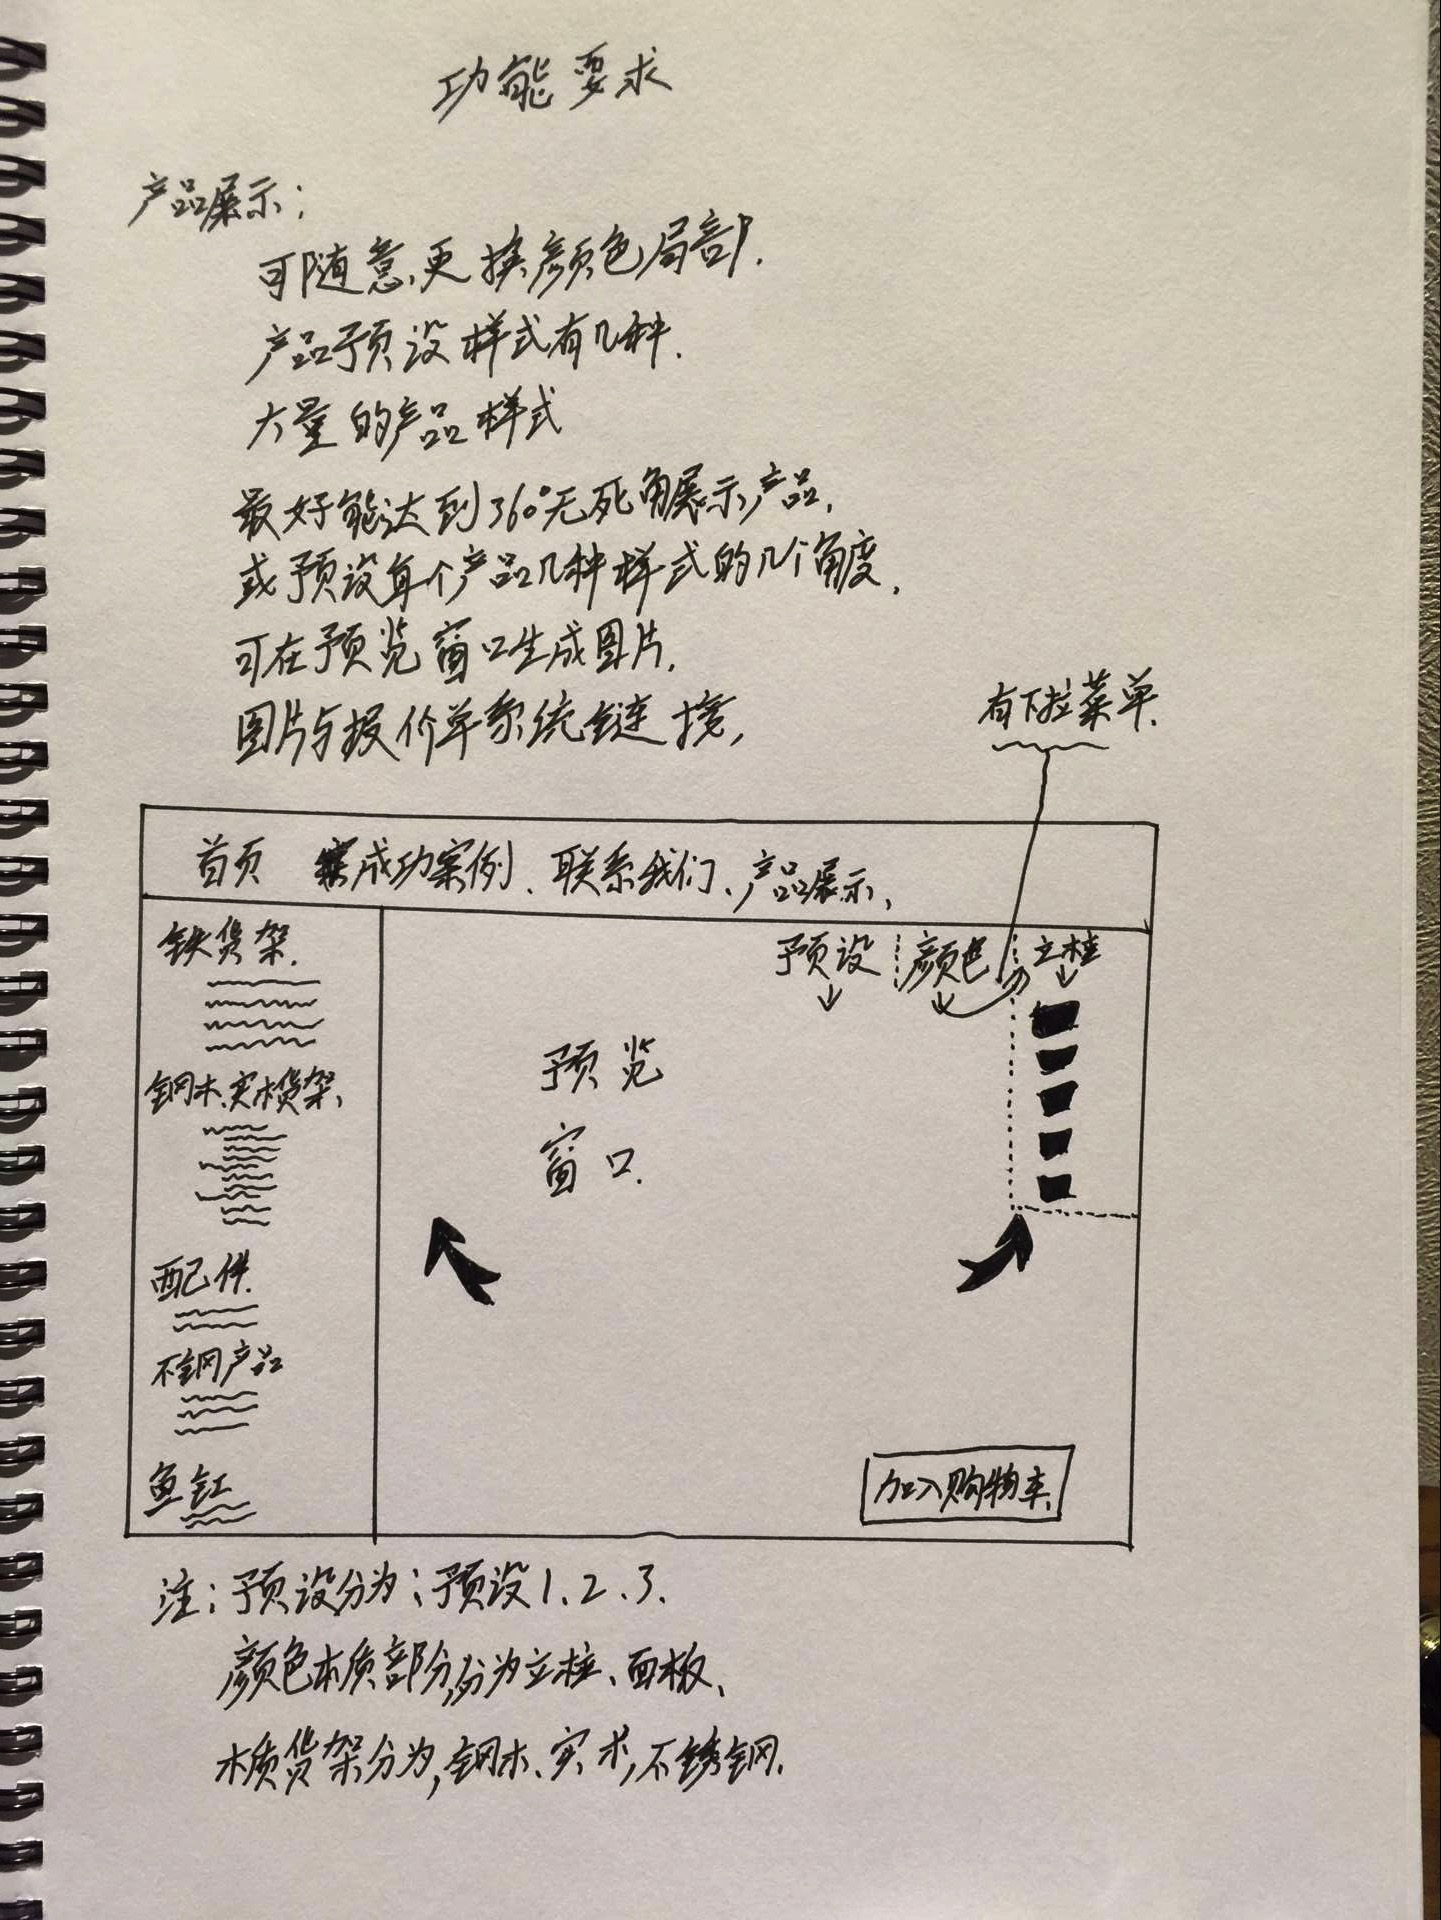 功能要求
产品展示：
可随意更换颜色局部.
产品预设样式有几种.
大量的产品样式
最好能达到360°无死角展示产品,
或预设每个产品几种样式的几个角度,
可在预览窗口生成图片,
图片与报价单系统链接,
有下拉菜单.
首页 成功案例、联系我们、产品展示,
铁货架.
预设 颜色 立柱
预览
窗口.
钢木.实木货架,
配件.
不钢产品
鱼缸
加入购物车.
注：预设分为：预设1.2.3.
颜色木质部分,分为立柱、面板、
木质货架分为,钢木、实木,不锈钢.